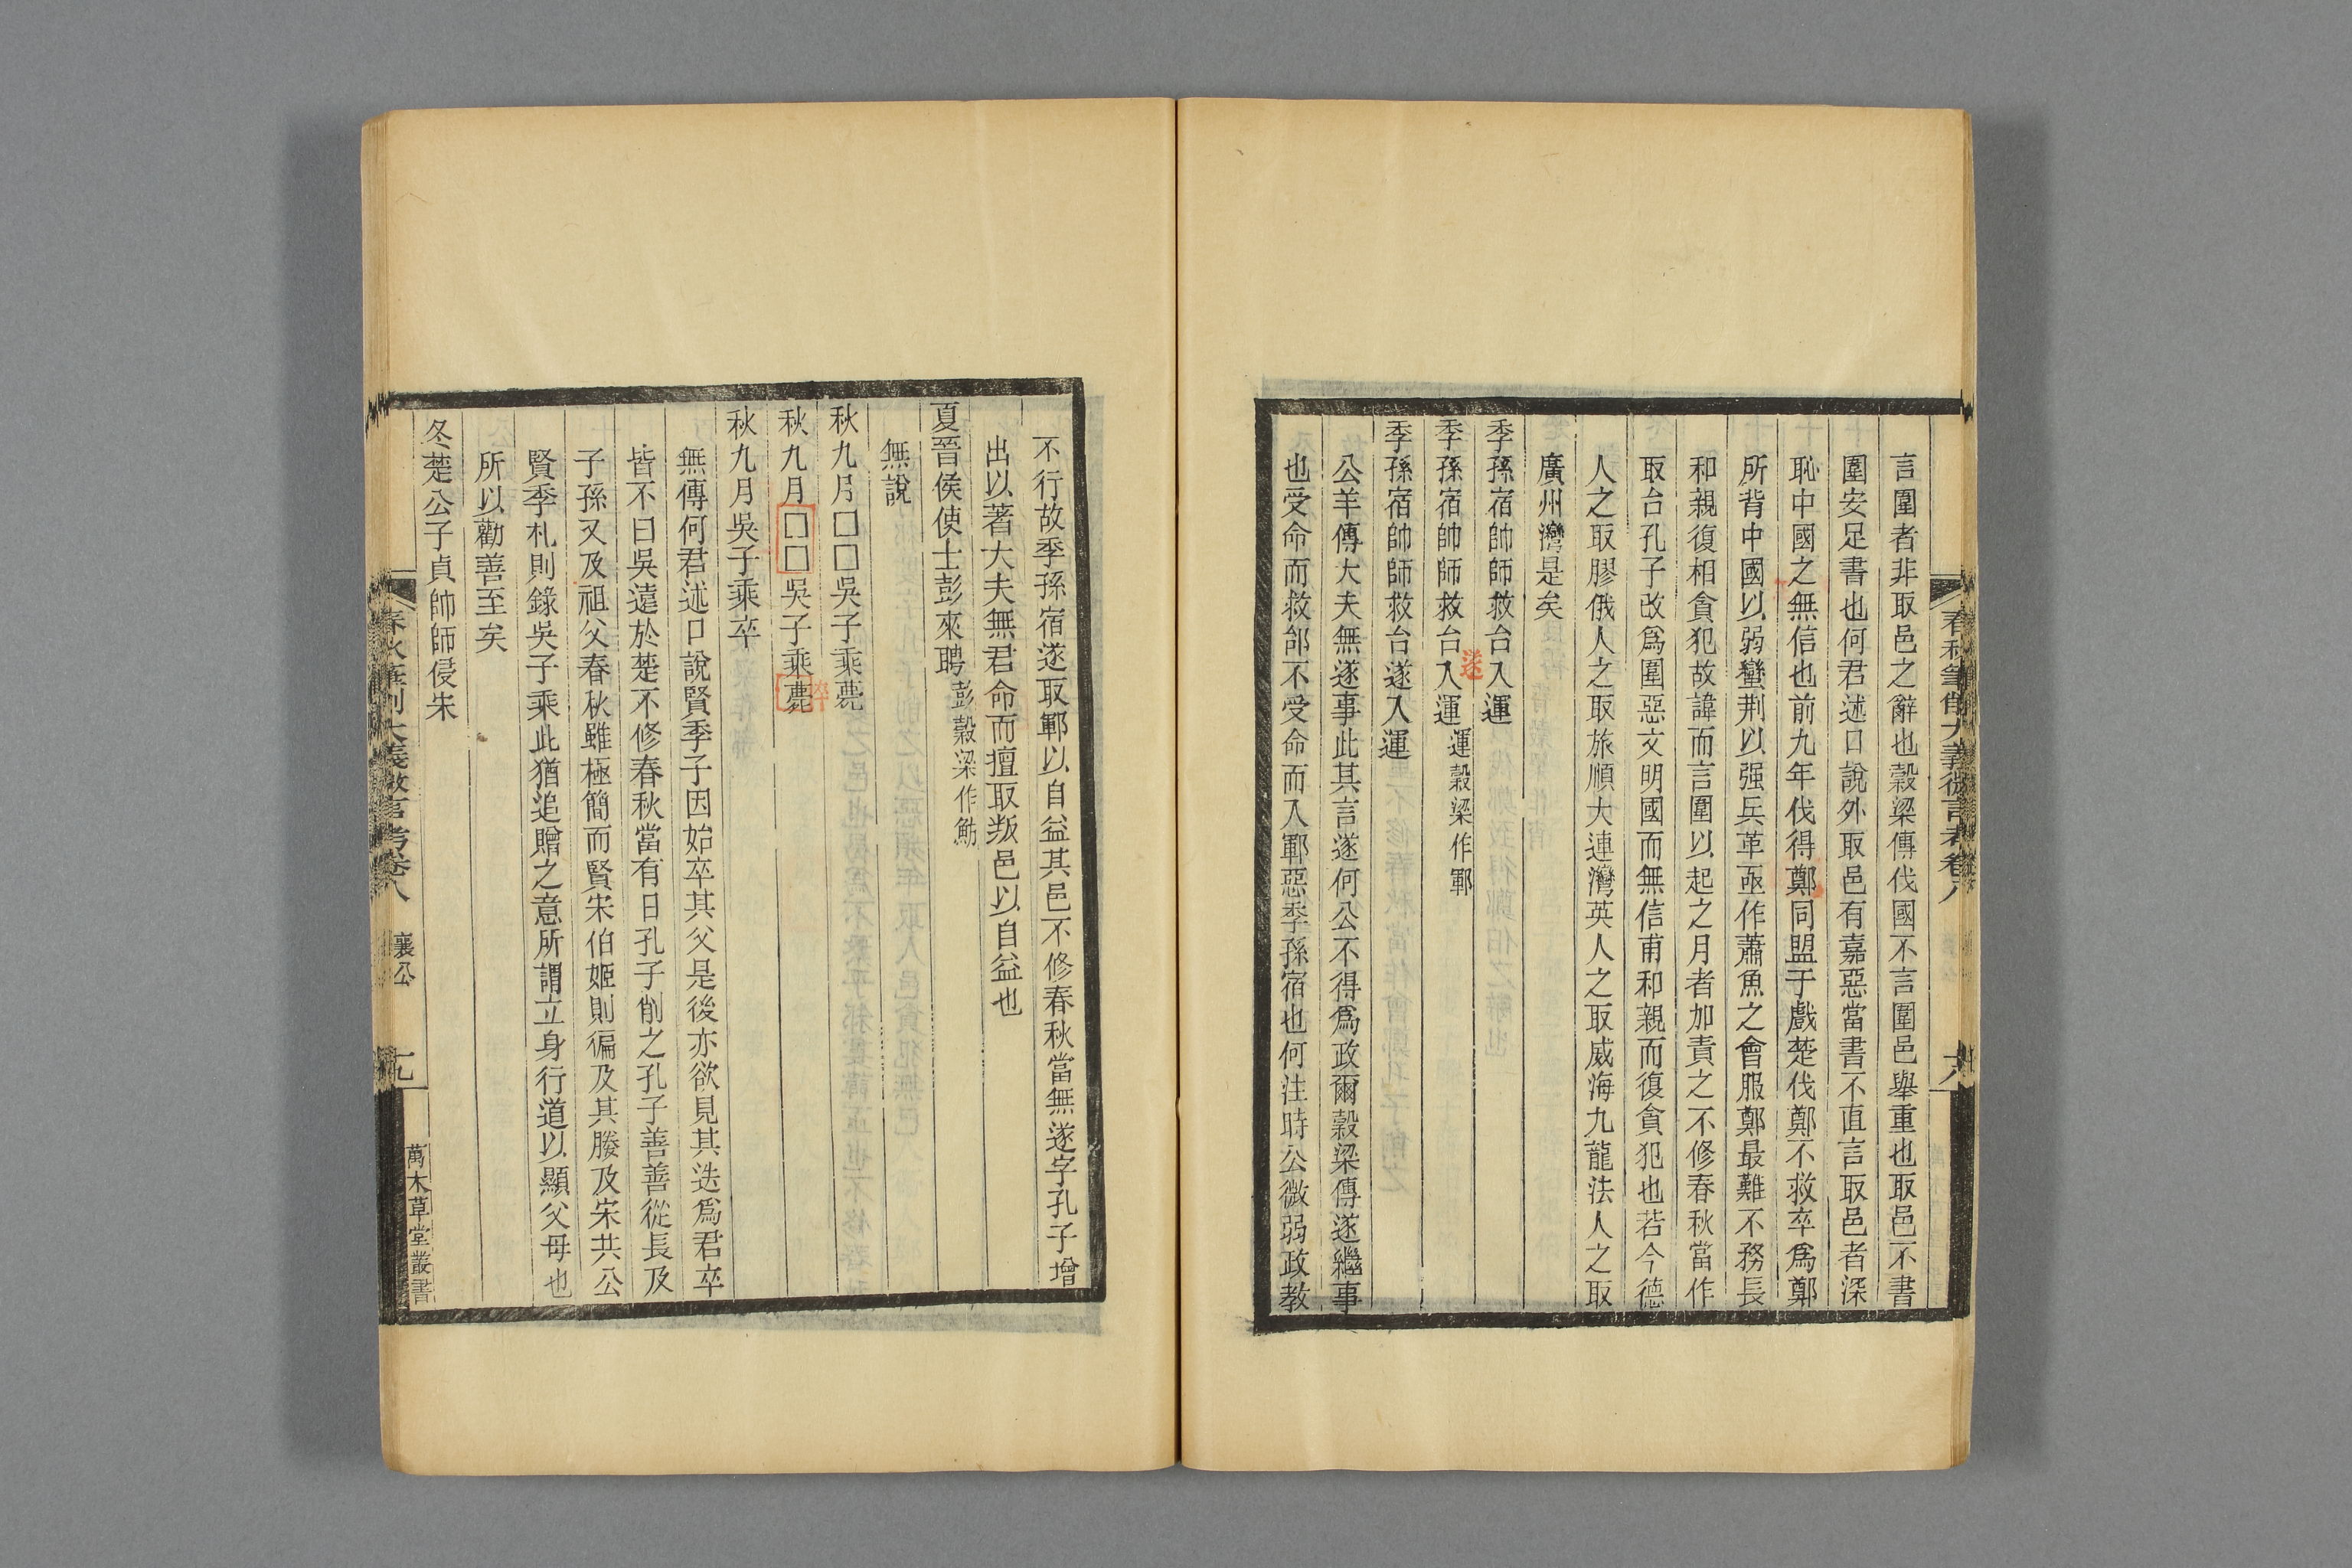 春秋筆削大義微言考卷八
言圍者非取邑之辭也穀梁傳伐國不言圍邑舉重也取邑不書
圍安足書也何君述口說外取邑有嘉惡當書不直言取邑者深
恥中國之無信也前九年伐得鄭同盟于戲楚伐鄭不救卒爲鄭
所背中國以弱蠻荆以强兵革亟作蕭魚之會服鄭最難不務長
和親復相貪犯故諱而言圍以起之月者加責之不修春秋當作
取台孔子改爲圍惡文明國而無信甫和親而復貪犯也若今德
人之取膠俄人之取旅順大連灣英人之取威海九龍法人之取
廣州灣是矣
季孫宿帥師救台入運
季孫宿帥師救台遂入運運穀梁作鄆
季孫宿帥師救台遂入運
公羊傳大夫無遂事此其言遂何公不得爲政爾穀梁傳遂繼事
也受命而救郃不受命而入鄆惡季孫宿也何注時公微弱政教
不行故季孫宿遂取鄆以自益其邑不修春秋當無遂字孔子增
出以著大夫無君命而擅取叛邑以自益也
夏晉侯使士彭來聘彭穀梁作魴
無說
秋九月□□吳子乘薨
秋九月□□吳子乘薨卒
秋九月吳子乘卒
無傳何君述口說賢季子因始卒其父是後亦欲見其迭爲君卒
皆不日吳遠於楚不修春秋當有日孔子削之孔子善善從長及
子孫又及祖父春秋雖極簡而賢宋伯姬則徧及其媵及宋共公
賢季札則錄吳子乘此猶追贈之意所謂立身行道以顯父母也
所以勸善至矣
冬楚公子貞帥師侵宋
春秋筆削大義微言考卷八 襄公
萬木草堂叢書